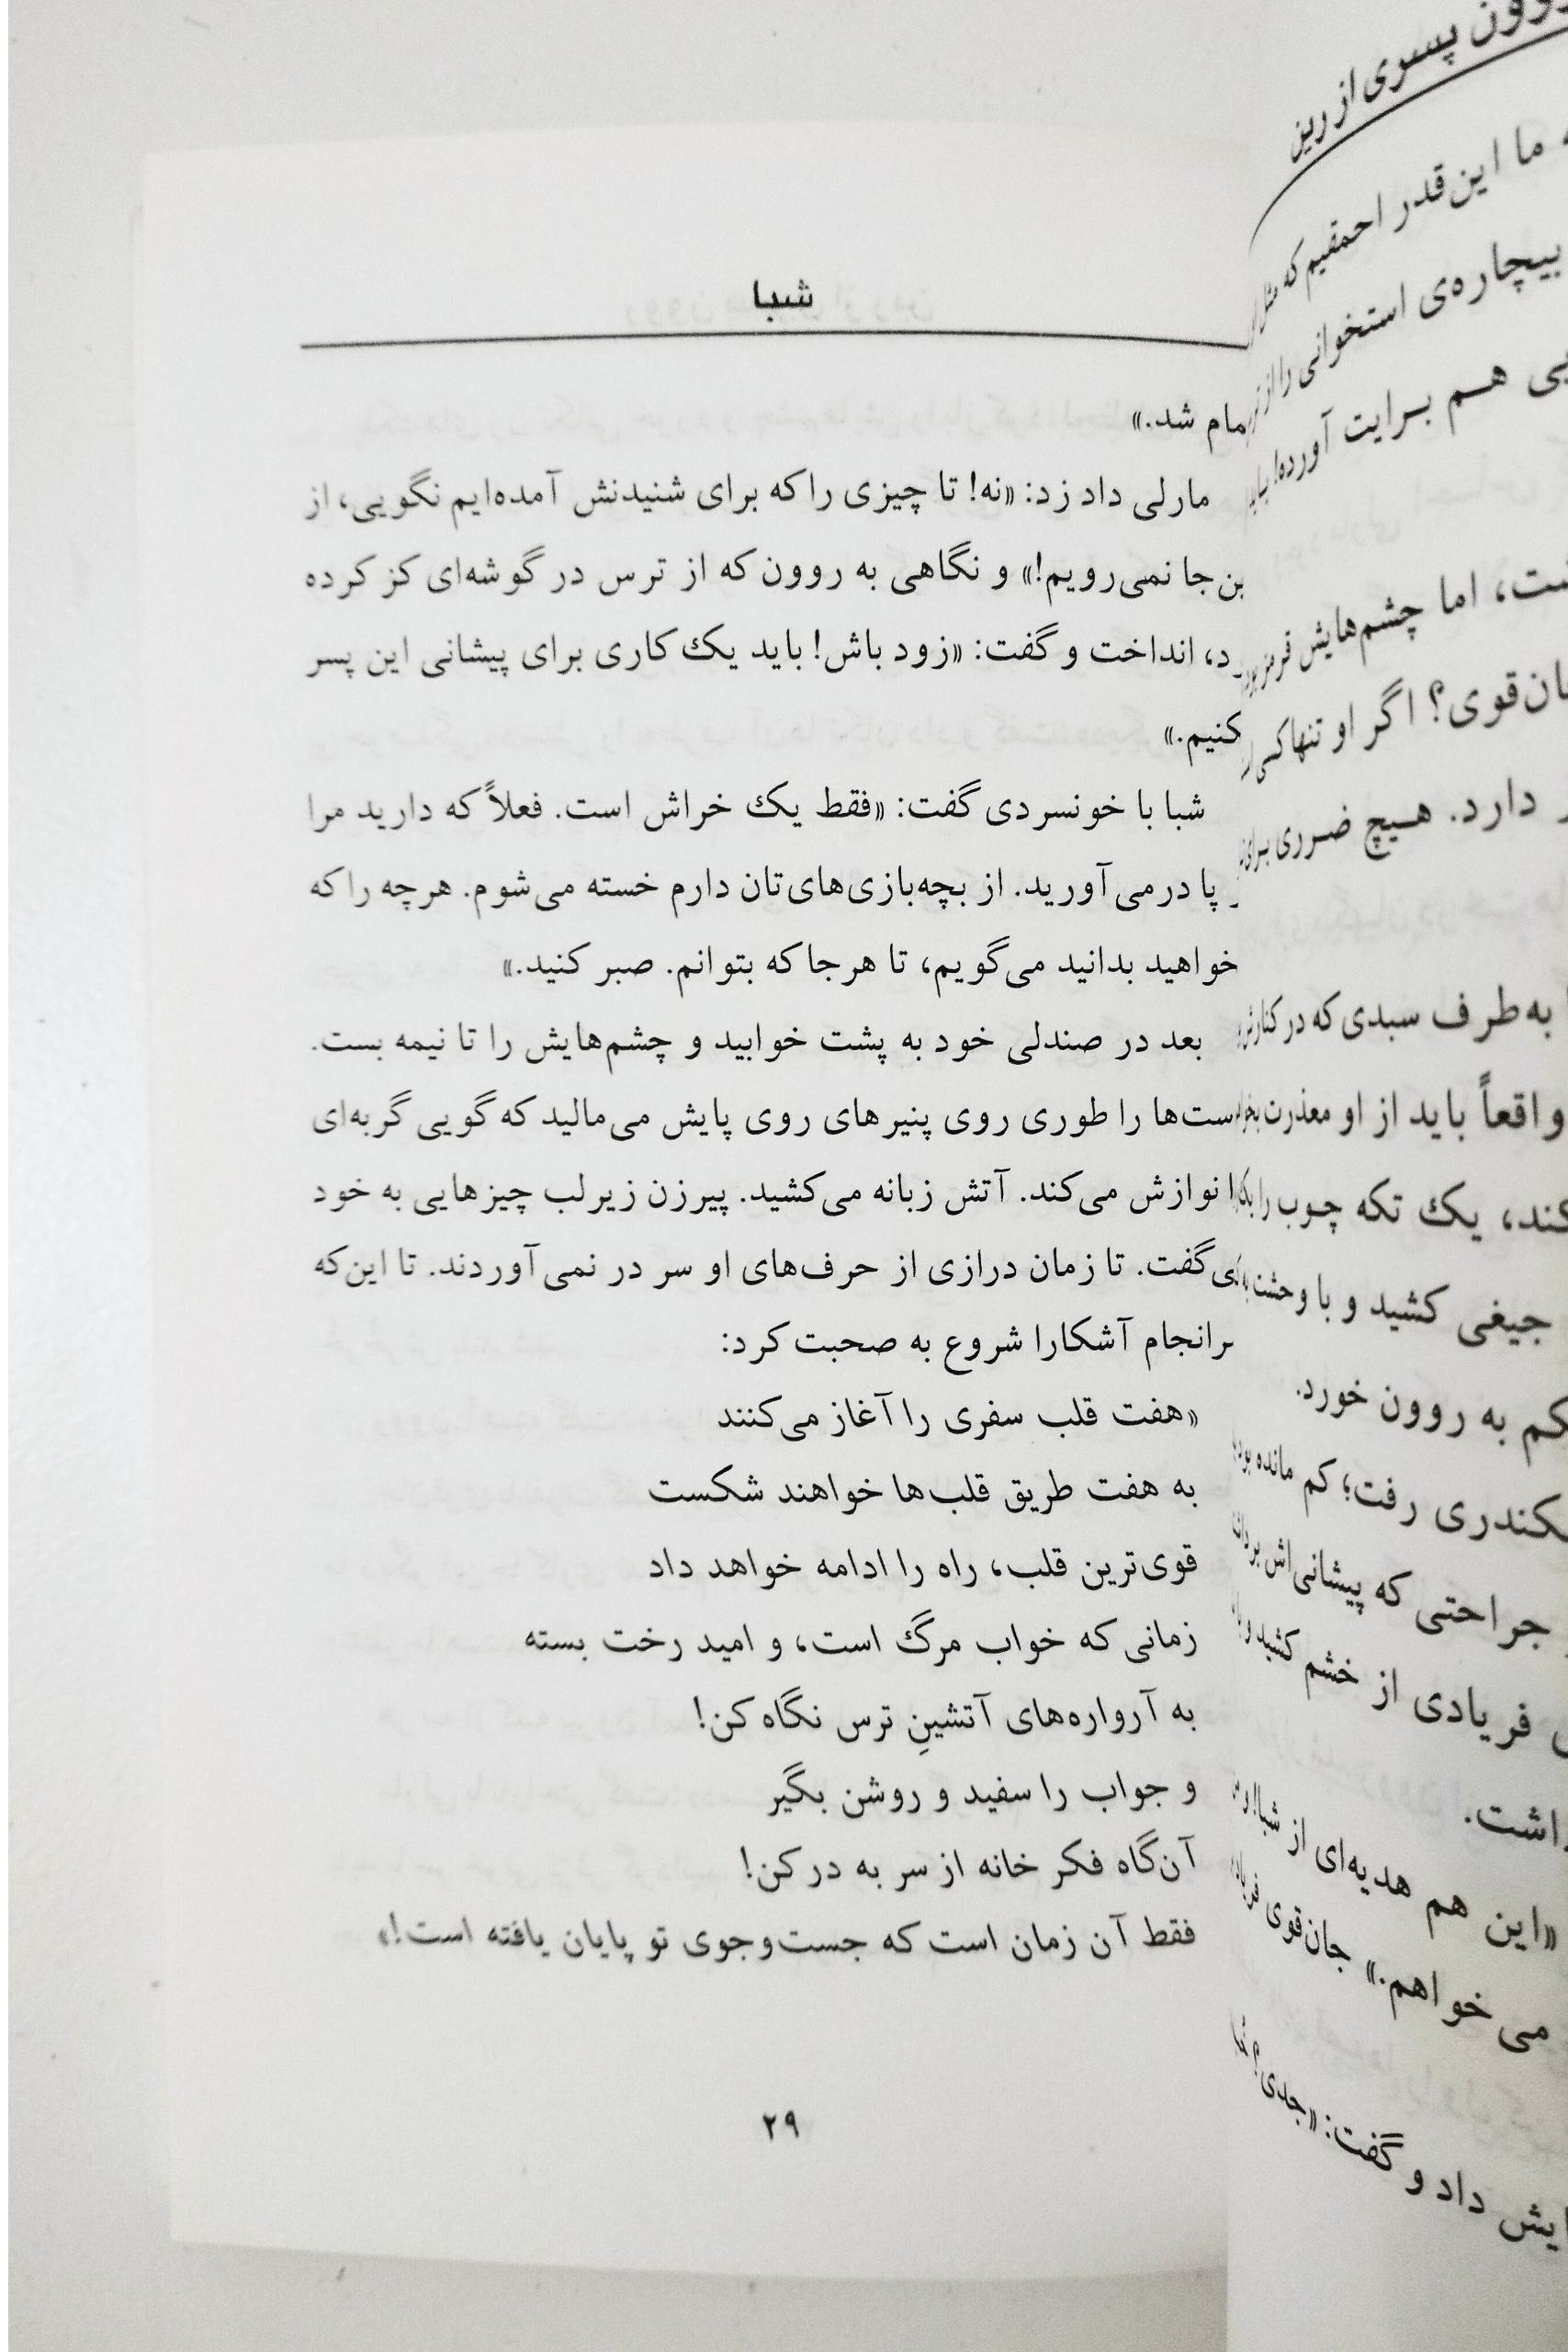 پسری از رین
ما این‌قدر احمقیم که مثل
بیچاره‌ی استخوانی را از
هم برایت آورده!
اما چشم‌هایش قرمز بود
جان‌قوی؟ اگر او تنها کسی
دارد. هیچ ضرری برای
به‌طرف سبدی که در کنارش
واقعاً باید از او معذرت
یک تکه چوب را
جیغی کشید و با وحشت
به روون خورد.
سکندری رفت؛ کم مانده بود
جراحتی که پیشانی‌اش
فریادی از خشم کشید و
«این هم هدیه‌ای از شبا!
می‌خواهم.» جان‌قوی
داد و گفت: «جدی؟
شبا
تمام شد.»
مارلی داد زد: «نه! تا چیزی را که برای شنیدنش آمده‌ایم نگویی، از
این‌جا نمی‌رویم!» و نگاهی به روون که از ترس در گوشه‌ای کز کرده
انداخت و گفت: «زود باش! باید یک کاری برای پیشانی این پسر
کنیم.»
شبا با خونسردی گفت: «فقط یک خراش است. فعلاً که دارید مرا
پا درمی‌آورید. از بچه‌بازی‌های‌تان دارم خسته می‌شوم. هرچه را که
خواهید بدانید می‌گویم، تا هرجا که بتوانم. صبر کنید.»
بعد در صندلی خود به پشت خوابید و چشم‌هایش را تا نیمه بست.
دست‌ها را طوری روی پنیرهای روی پایش می‌مالید که گویی گربه‌ای
را نوازش می‌کند. آتش زبانه می‌کشید. پیرزن زیرلب چیزهایی به خود
می‌گفت. تا زمان درازی از حرف‌های او سر در نمی‌آوردند. تا این‌که
سرانجام آشکارا شروع به صحبت کرد:
«هفت قلب سفری را آغاز می‌کنند
به هفت طریق قلب‌ها خواهند شکست
قوی‌ترین قلب، راه را ادامه خواهد داد
زمانی که خواب مرگ است، و امید رخت بسته
به آرواره‌های آتشینِ ترس نگاه کن!
و جواب را سفید و روشن بگیر
آن‌گاه فکر خانه از سر به در کن!
فقط آن زمان است که جست‌وجوی تو پایان یافته است!»
۲۹